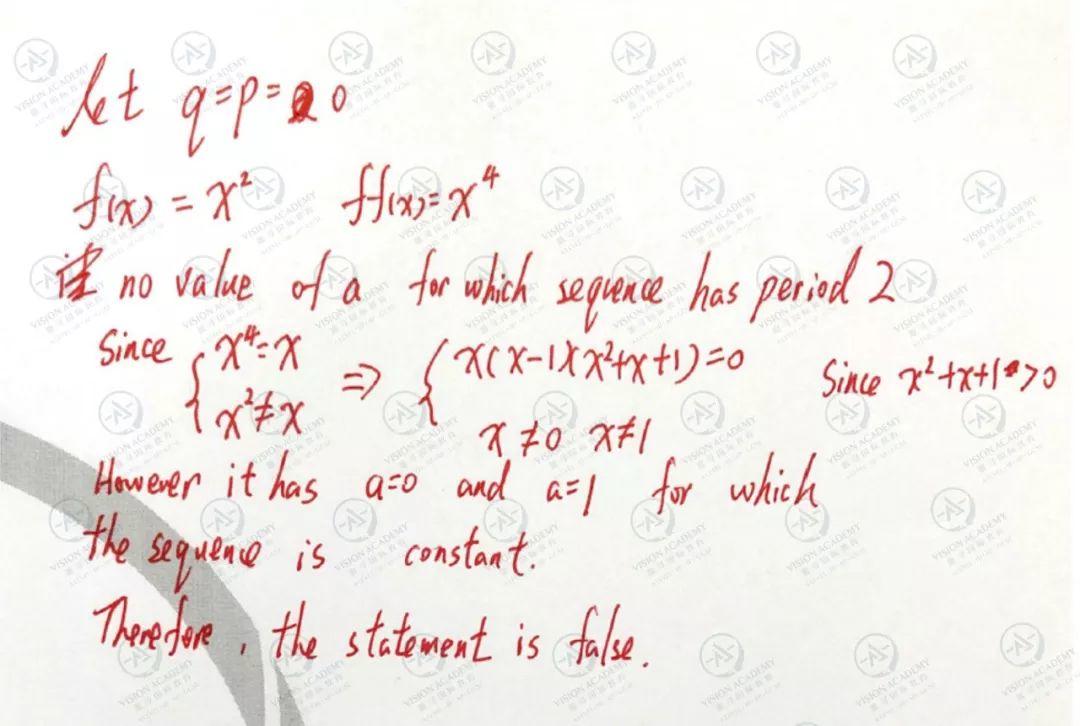 let q=p=0
f(x) = x² ff(x)=x⁴
no value of a for which sequence has period 2
Since { x⁴=x ⇒ { x(x-1)(x²+x+1)=0 Since x²+x+1>0
x²≠x x≠0 x≠1
However it has a=0 and a=1 for which
the sequence is constant.
Therefore, the statement is false.
VISION ACADEMY